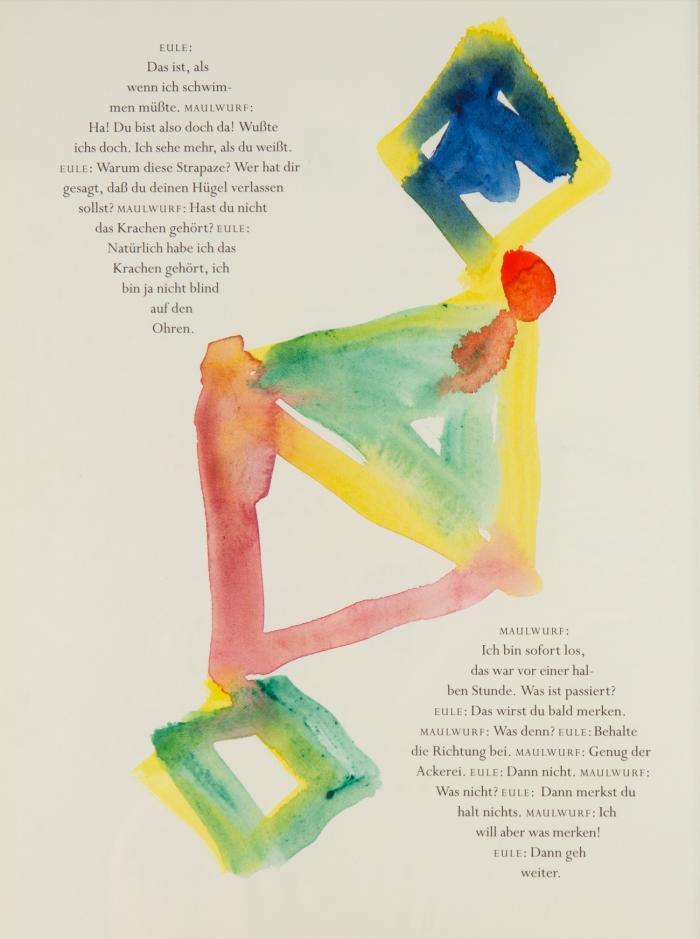 EULE:
Das ist, als
wenn ich schwim-
men müßte. MAULWURF:
Ha! Du bist also doch da! Wußte
ichs doch. Ich sehe mehr, als du weißt.
EULE: Warum diese Strapaze? Wer hat dir
gesagt, daß du deinen Hügel verlassen
sollst? MAULWURF: Hast du nicht
das Krachen gehört? EULE:
Natürlich habe ich das
Krachen gehört, ich
bin ja nicht blind
auf den
Ohren.
MAULWURF:
Ich bin sofort los,
das war vor einer hal-
ben Stunde. Was ist passiert?
EULE: Das wirst du bald merken.
MAULWURF: Was denn? EULE: Behalte
die Richtung bei. MAULWURF: Genug der
Ackerei. EULE: Dann nicht. MAULWURF:
Was nicht? EULE: Dann merkst du
halt nichts. MAULWURF: Ich
will aber was merken!
EULE: Dann geh
weiter.